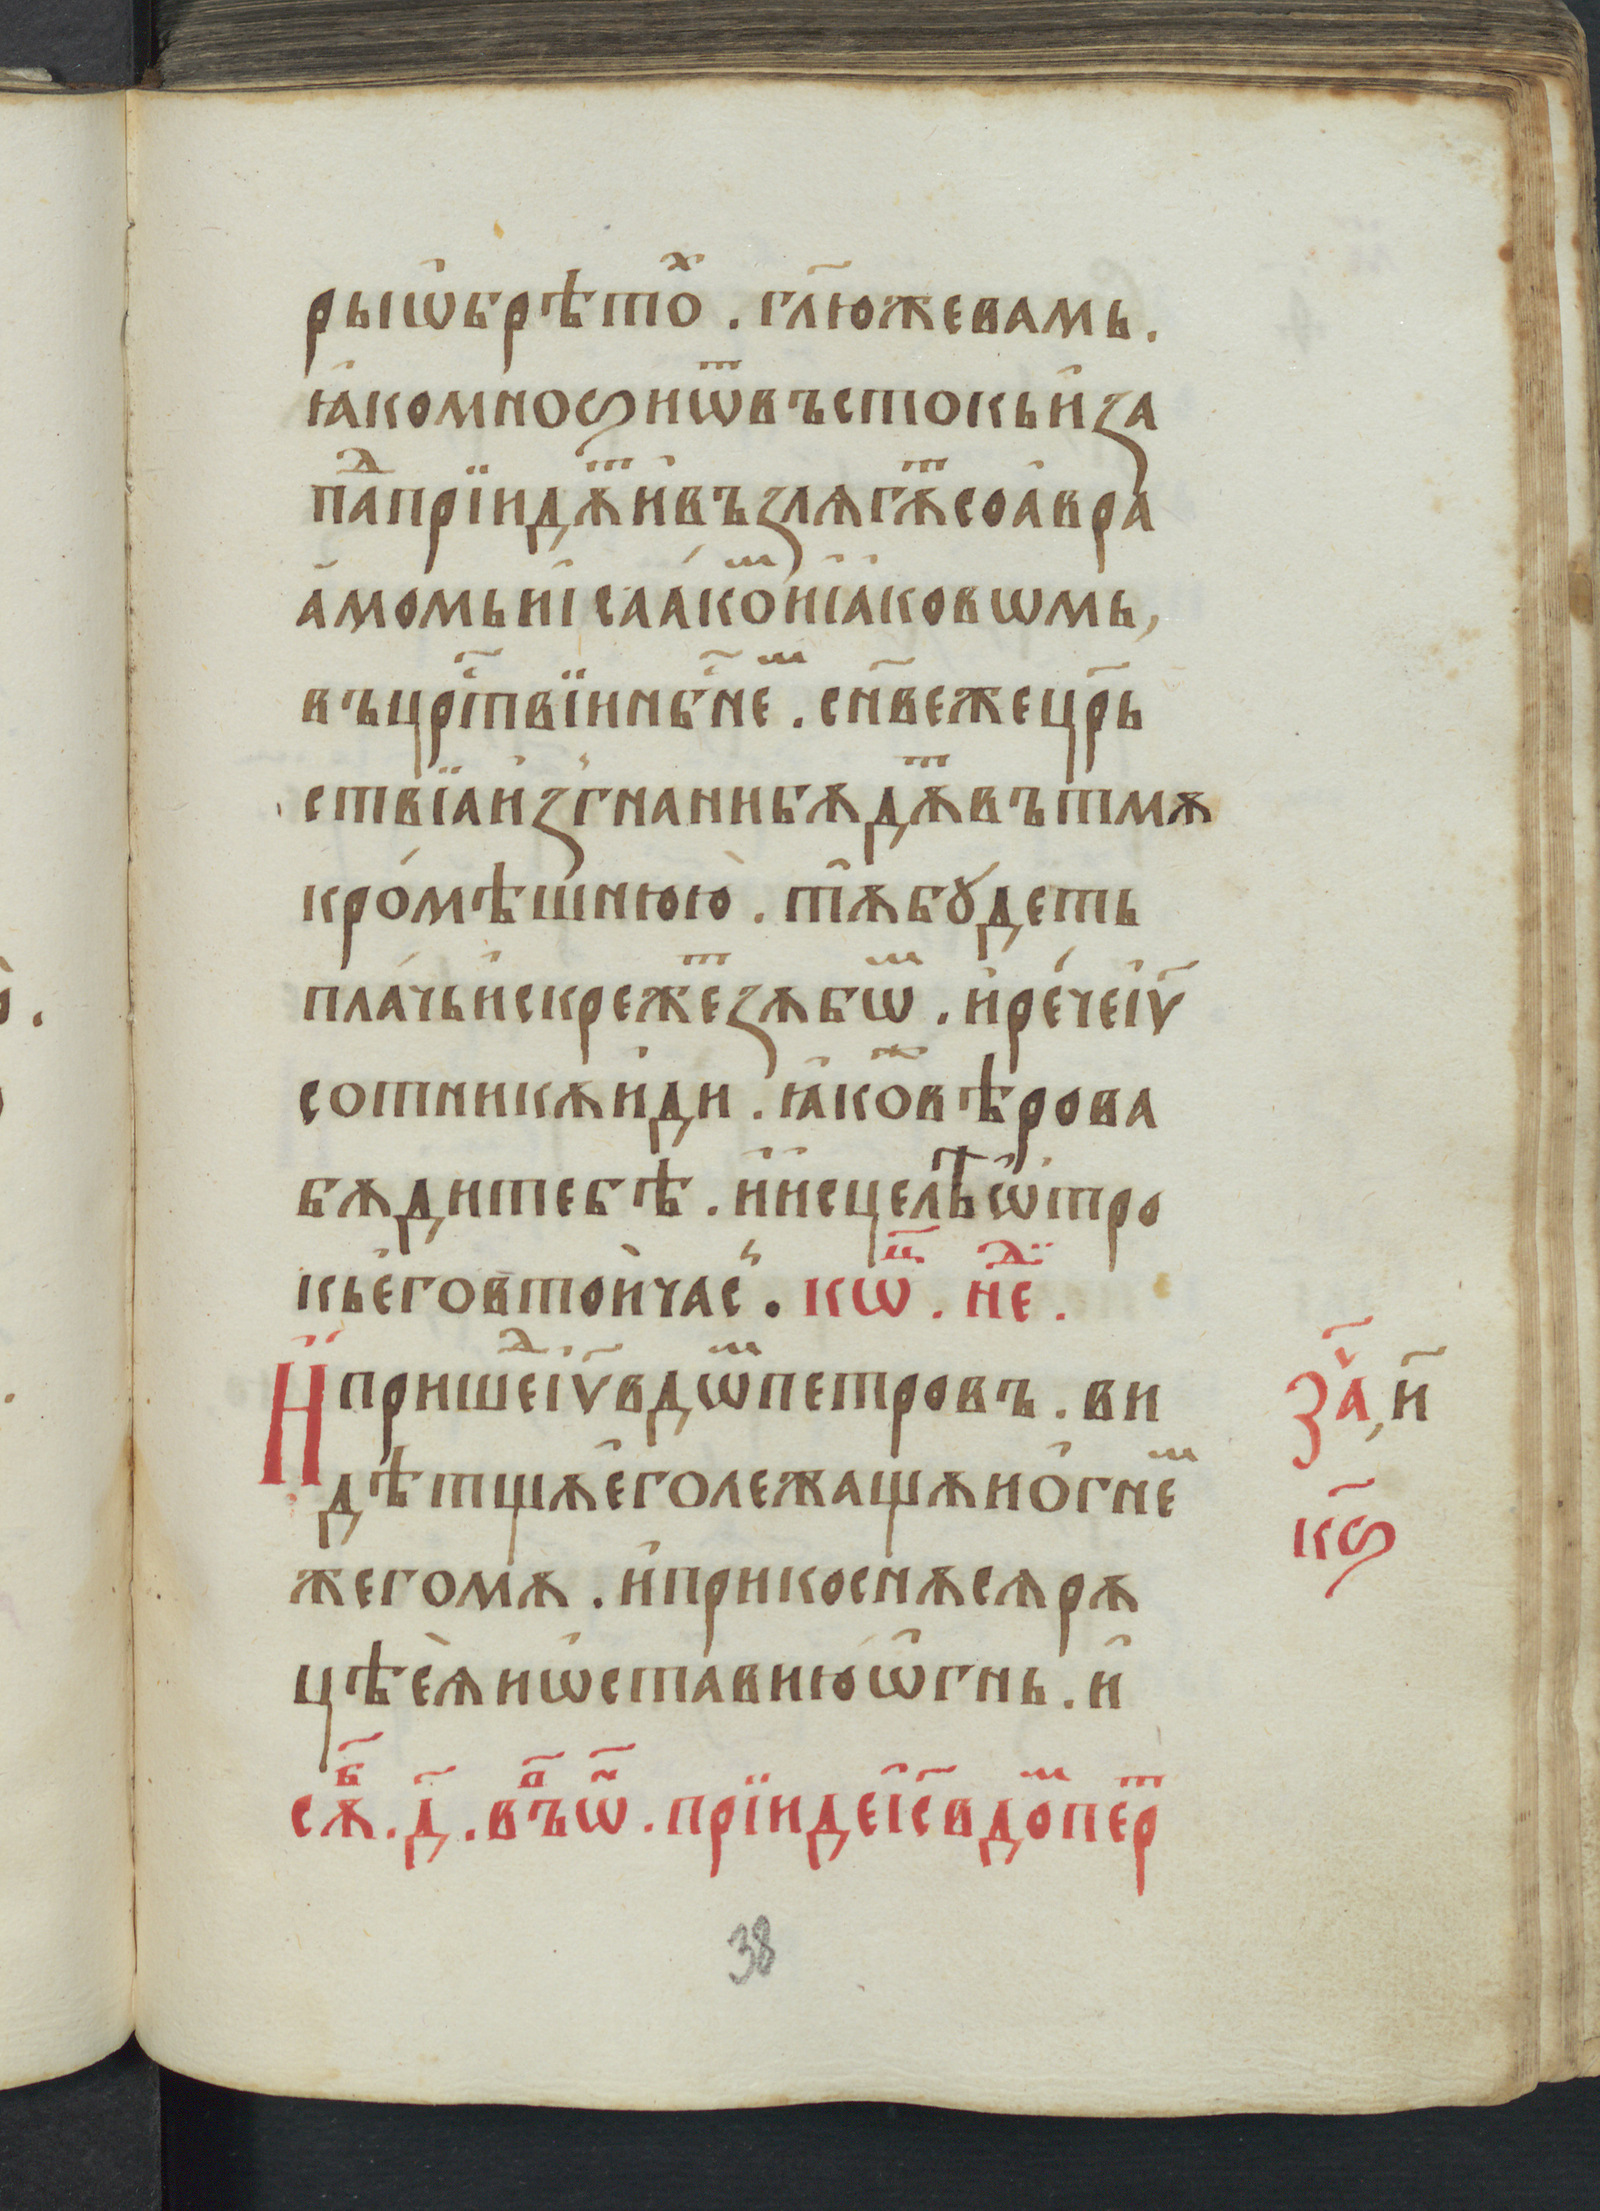 рыѡ҆брѣто́ⷯ . гл҃южевамь .
ꙗ҆комноѕиѿвъстокьи҆за
паⷣпрїидѫⷮи҆въꙁлѧгѫⷮсоа҆вра
а҆момьиі҆саа́коⷨи҆і҆а҆ковѡмь,
въцр҃ⷭтвїинбⷭ҇неⷨ . сн҃вежецр҃ь
ствїаи҆ꙁгнанибѫдѫⷮвътмѫ
кро́мѣшнюю̀ . тꙋ҆ѫбꙋдеть
пла́чьи҆скрежеⷮꙁѫбѡⷨ . и҆ре́чеі҆ѵ҃
сотникѫи҆ди . ꙗ҆коⷤвѣрова
бѫдитебѣ . и҆и҆сцелѣѡ҆тро
кье҆говтои҆час̾ . кѡⷰ҇ . н҃еⷣ .
И҆пришеⷣі҆ѵ҃вдѡⷨпетровъ . ви
дѣтщѫе҆голежащѫио҆гнеⷨ
жегомѫ . и҆прикоснѫсѧрѫ
цѣеѧ̀иѡ҆ставию҆ѡ҆гнь . и҆
сѫⷠ҇ . д҃ . въⷫ҇ѡⷩ҇ . прїидеі҆с҃вдоⷨпеⷮр
за҃ⷱ, и҃
кѕ҃
38